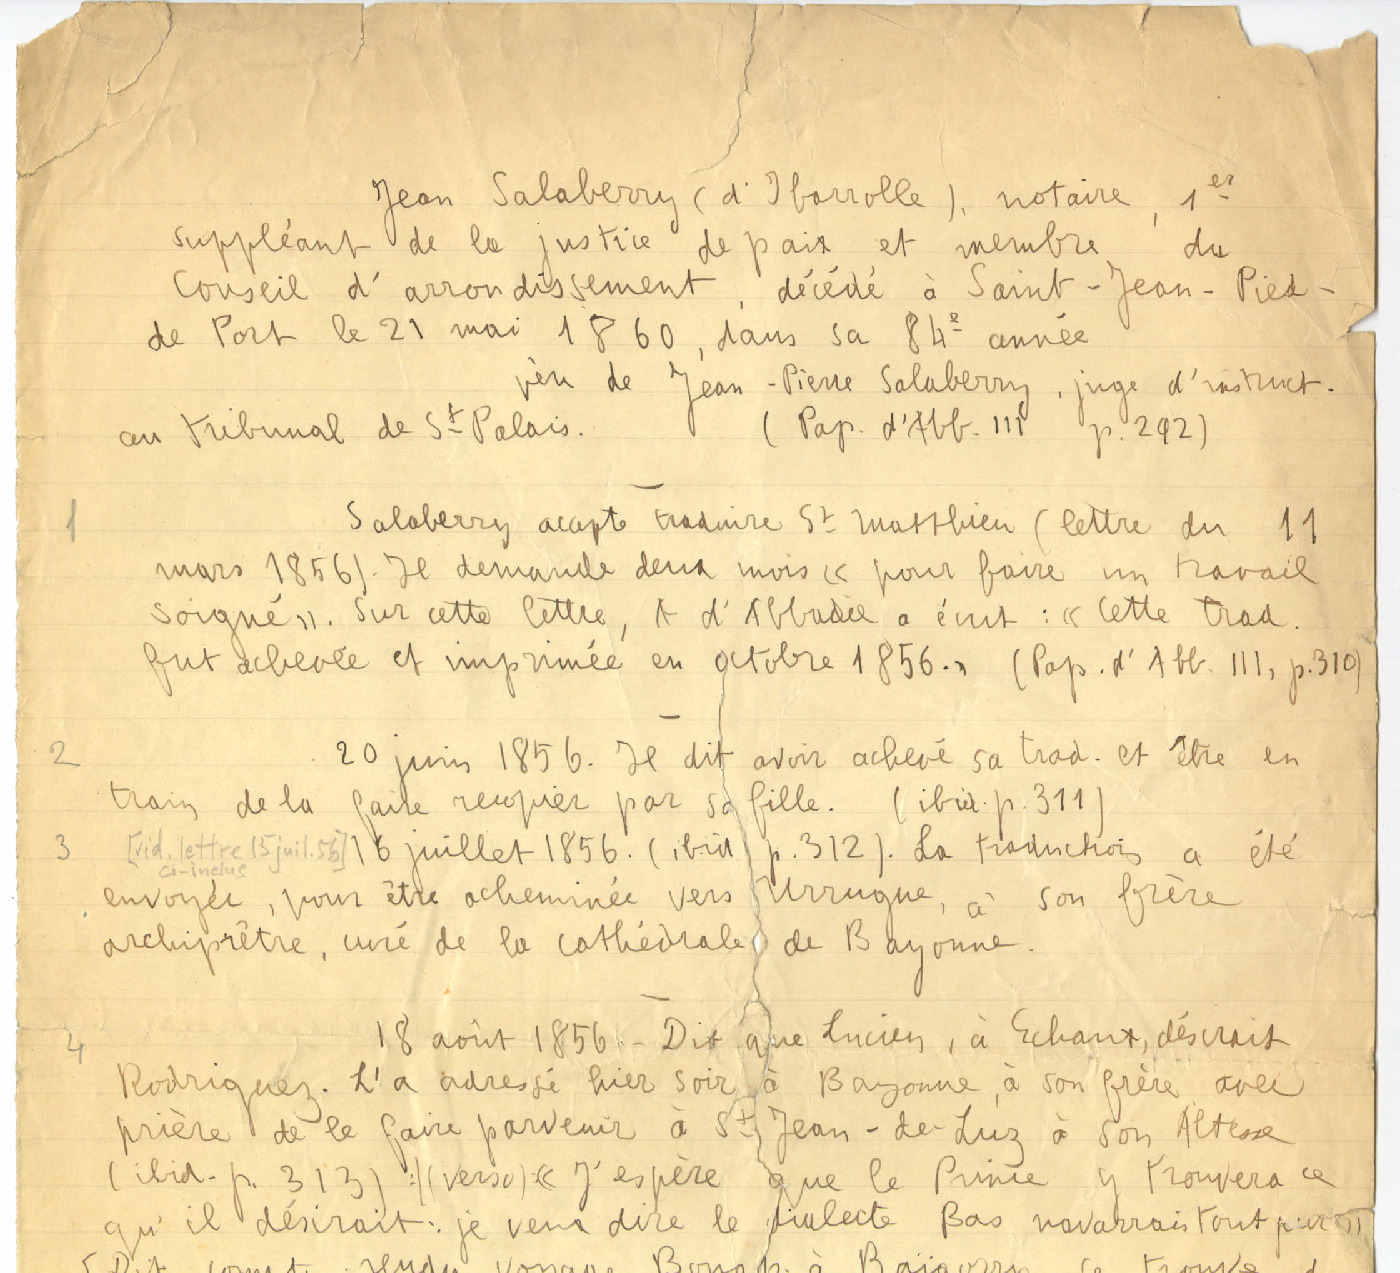 Jean Salaberry (d'Ibarrolle), notaire, 1er
suppléant de la justice de paix et membre du
Conseil d'arrondissement, décédé à Saint-Jean-Pied-
de Port le 21 mai 1860, dans sa 84e année
père de Jean-Pierre Salaberry, juge d'instruct.
au tribunal de St Palais. (Pap. d'Abb. III p. 292)
1 Salaberry accepte traduire St Matthieu (lettre du 11
mars 1856). Il demande deux mois « pour faire un travail
soigné ». Sur cette lettre, A d'Abbadie a écrit : « Cette trad.
fut achevée et imprimée en octobre 1856. » (Pap. d'Abb. III, p. 310)
2 20 juin 1856. Il dit avoir achevé sa trad. et être en
train de la faire recopier par sa fille. (ibid. p. 311)
3 [vid. lettre 15 juil. 56] 16 juillet 1856. (ibid p. 312). La traduction a été
ci-inclus
envoyée, pour être acheminée vers Urrugne, à son frère
archiprêtre, curé de la cathédrale de Bayonne.
4 18 août 1856. - Dit que Lucien, à Echaux, désirait
Rodriguez. L'a adressé hier soir à Bayonne, à son frère avec
prière de le faire parvenir à St Jean-de-Luz à son Altesse
(ibid. p. 313) :/(verso) « J'espère que le Prince y trouvera ce
qu'il désirait : je veux dire le dialecte Bas navarrais tout pur »
5 Dit compt. rendu voyage Bonap. à Baïgorry se trouve